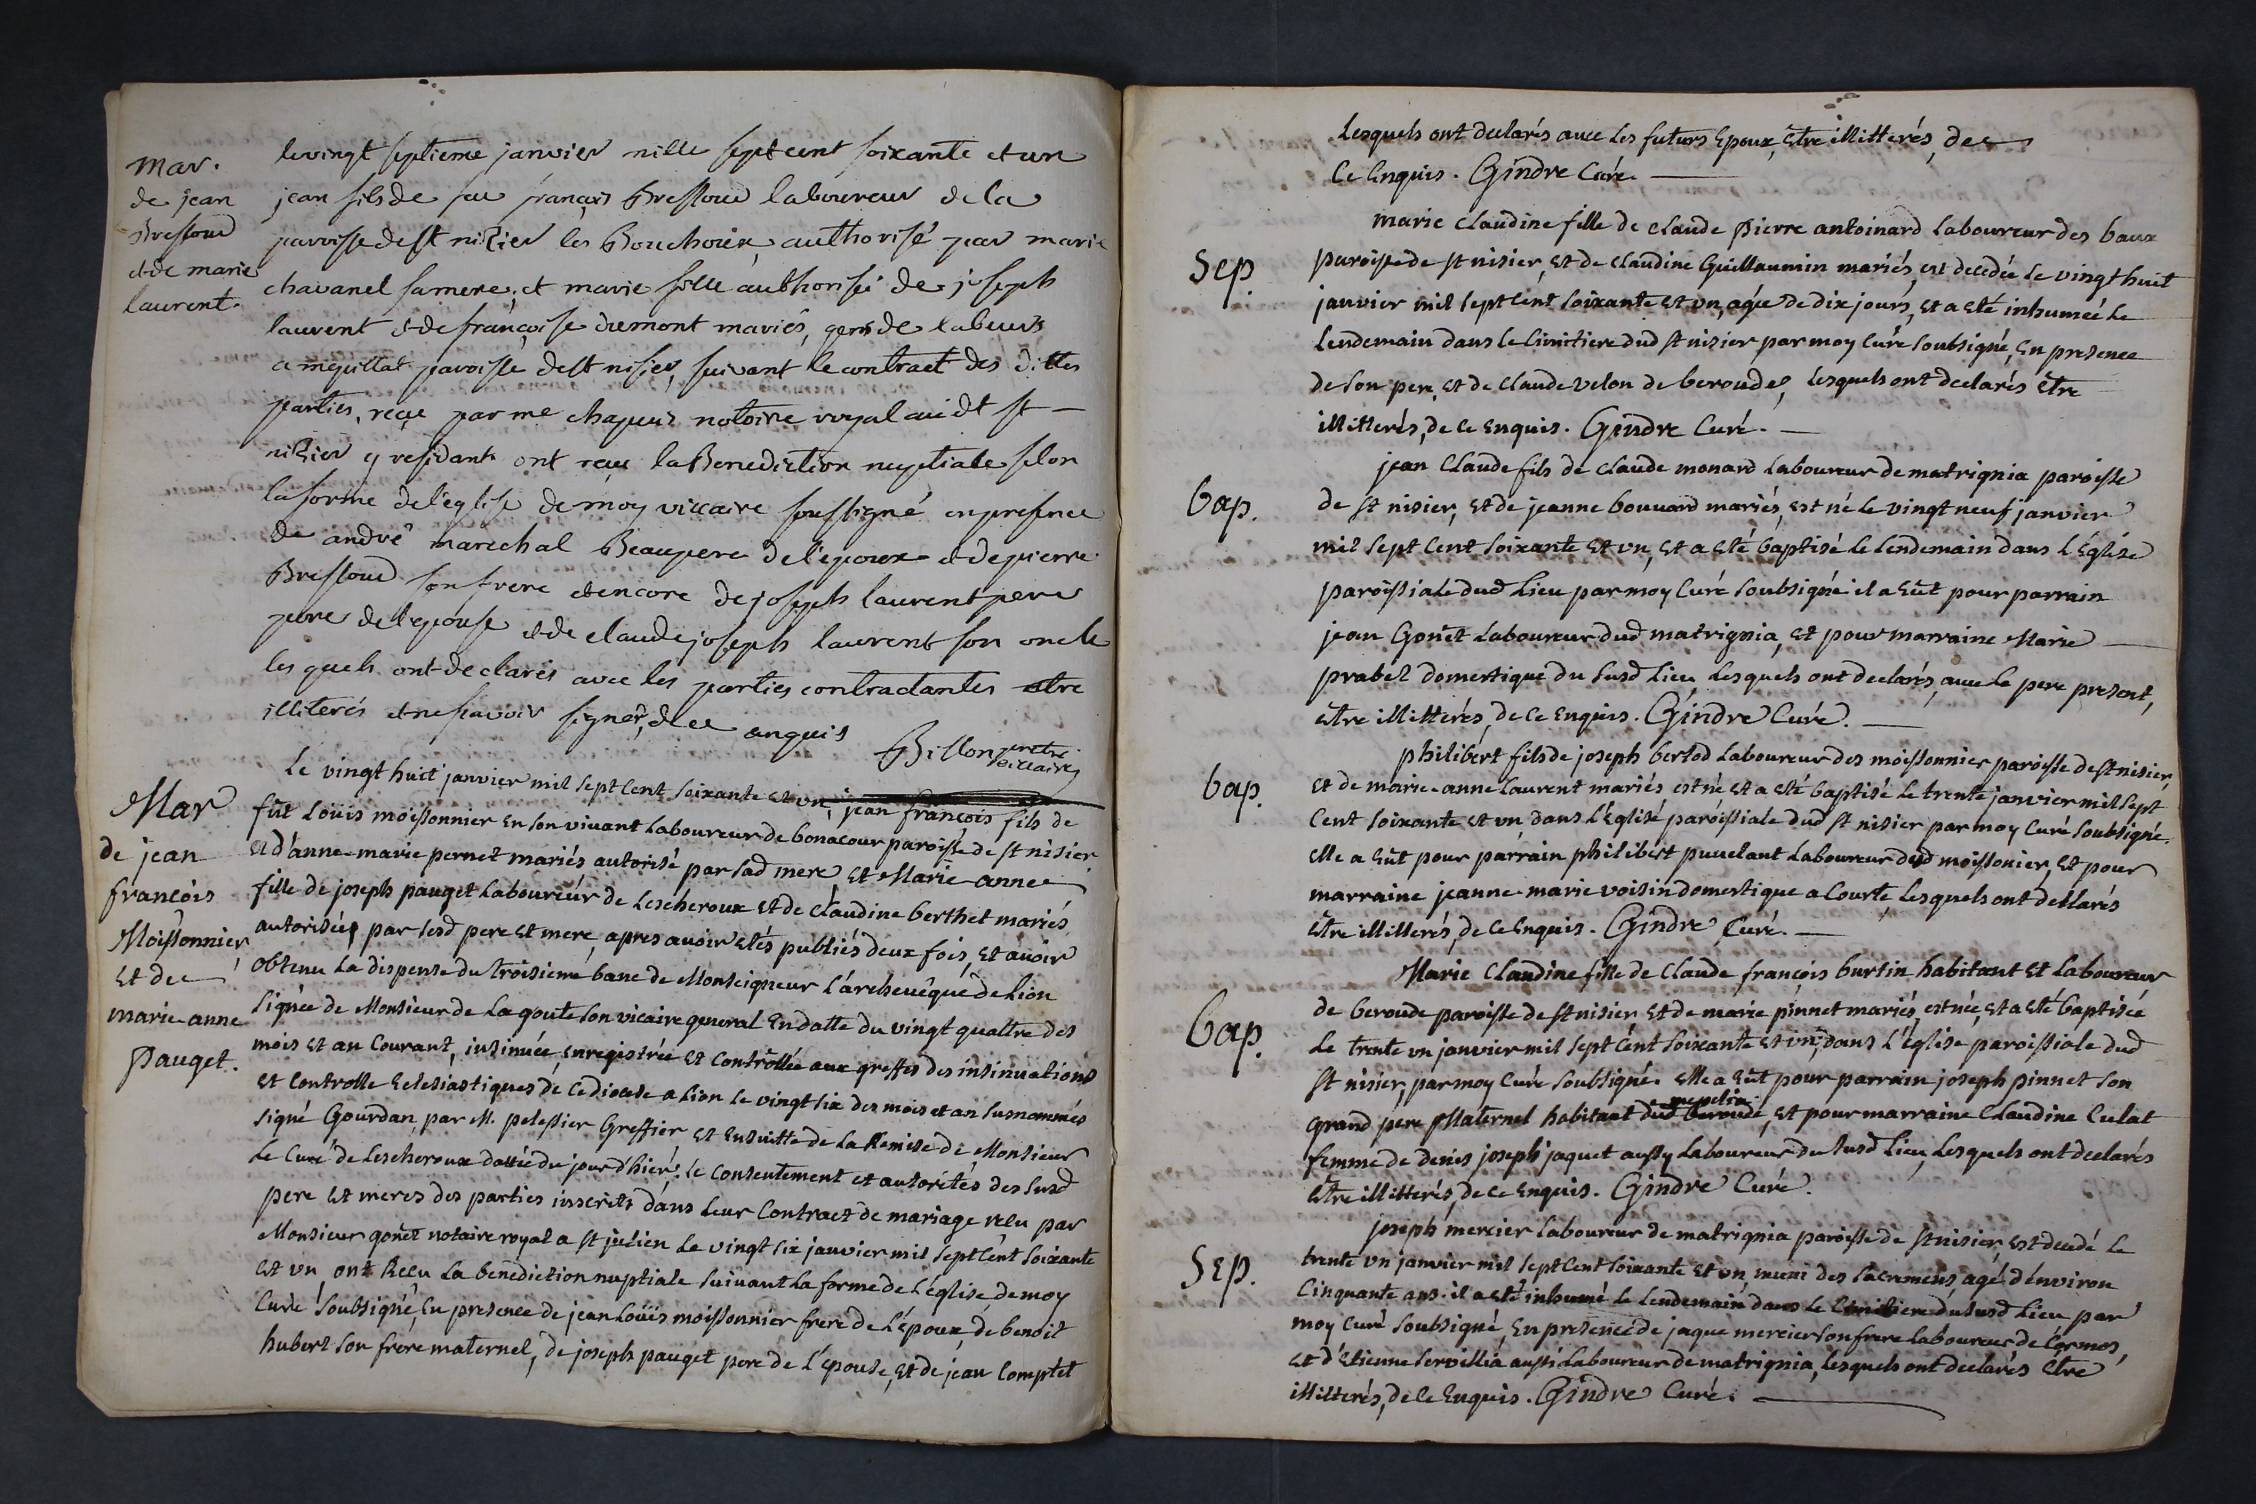 mar.
de jean
Bressoud
et de marie
laurent.
le vingt septieme janvier mille sept cent soixante et un
jean fils de feu françois Bressoud laboureur de la
paroisse de st nizier les Bouchoux, authorisé par marie
chavanel sa mere, et marie fille authorisé de joseph
laurent et de françoise dumont mariés, gens de labeurs
a paroisse de st nisier, suivant le contract des dittes
parties, reçu par me chapuis notoire royal audt st –
nizier y residant ont reçu la Benediction nuptiale selon
la forme de l'eglise de moy viccaire soussigné en presence
de andré maréchal Beaupere de l'epoux et de pierre
Bressoud son frere et encore de joseph laurent pere
pere de l'epouse et de claude joseph laurent son oncle
les quels ont declarés avec les parties contractantes etre
illiterés et ne sçavoir signer, de ce anquis Billon pretre
viccaire
Mar
de jean
francois
Moissonnier
Et de
marie-anne
Pauget.
Le vingt huit janvier mil sept Cent soixante et un, jean francois fils de
fût Loüis moissonnier En son vivant Laboureur de bonacour paroisse de st nisier
Et d'anne-marie pernet mariés autorisé par sad mere Et Marie-anne
fille de joseph pauget Laboureur de Lescheroux Et de Claudine berthet mariés
autorisée par sesd pere Et mere, apres avoir Etés publiés deux fois, Et avoir
obtenu La dispense du troisieme banc de Monseigneur L'archevêque de Lion
signée de Monsieur de La goute son vicaire general En datte du vingt quattre des
mois Et an Courant, insinuée Enregistrée Et Controllée aux greffes des insinuations
Et Controlle Eclesiastiques de Ce diocese a Lion le vingt six des mois et an susnommés
signé Gourdan, par M. pelessier Greffier Et Ensuitte de La Remise de Monsieur
Le Curé de Lescheroux dattée du jour d'hier. Le Consentement et autorités des susd
pere Et meres des parties inscrits dans Leur Contract de mariage reçu par
Monsieur goñet notaire royal a st julien Le vingt six janvier mil sept Cent soixante
Et un, ont Reçu La benediction nuptiale suivant La forme de L'eglise de moy
Curé soubsigné, En presence de jean Loüis moissonnier frere de L'époux, de benoit
hubert son frere maternel, de joseph pauget pere de L'epouse, Et de jean Comptet
Lesquels ont declarés avec Les futurs Epoux, Etre illitterés, de
Ce Enquis. Gindre Curé.
Sep.
marie Claudine fille de Claude pierre antoinard Laboureur des baux
paroisse de st nisier, Et de Claudine Guillaumin mariés, est decedée Le vingt huit
janvier mil sept Cent soixante Et un, agée de dix jours, Et a Eté inhumée Le
Lendemain dans Le Cimitiere dud st nisier par moy Curé soubsigné, En presence
de son pere, Et de Claude velon de beroude, Lesquels ont declarés Etre
illitterés, de Ce Enquis. Gindre Curé.
bap.
jean Claude fils de Claude monard Laboureur de matrignia paroisse
de st nisier, Et de jeanne bouvard mariés, est né Le vingt neuf janvier
mil sept Cent soixante Et un, Et a Eté baptisé Le Lendemain dans L'Eglise
paroissiale dud Lieu par moy Curé soubsigné il a Eüt pour parrain
jean Goñet Laboureur dud matrignia, Et pour marraine Marie
prabel domestique du susd Lieu, Lesquels ont declarés, avec Le pere present,
être illitterés, de Ce Enquis. Gindre Curé.
bap.
philibert fils de joseph bertod Laboureur des moissonnier paroisse de st nisier
Et de marie-anne Laurent mariés est né Et a Eté baptisé Le trente janvier mil sept
Cent soixante Et un, dans L'Eglise paroissiale dud st nisier par moy Curé soubsigné.
elle a Eüt pour parrain philibert puvelant Laboureur dud moissonnier, Et pour
marraine jeanne-marie voisin domestique a Courte Lesquels ont déclarés
Etre illitterés, de Ce Enquis. Gindre Curé.
bap.
Marie Claudine fille de Claude françois burtin habitant Et Laboureur
de beroude paroisse de st nisier, Et de marie pinnet mariés, est née, Et a Eté baptisée
Le trente un janvier mil sept Cent soixante Et un, dans L'église paroissiale dud
st nisier, par moy Curé soubsigné. elle a Eüt pour parrain joseph pinnet son
grand pere Maternel habitant dud beroude, Et pour marraine Claudine Culat
femme de denis joseph jaquet aussy Laboureur du susd Lieu, Lesquels ont declarés
Etre illitterés, de ce Enquis. Gindre Curé.
Sep.
joseph mercier Laboureur de matrignia paroisse de st nisier, Est decedé Le
trente un janvier mil sept Cent soixante Et un, muni des sacremens, agé d'environ
Cinquante ans. il a eté inhumé le Lendemain dans Le Cimitiere du susd Lieu par
moy Curé soubsigné, En presence de jaque mercier son frere Laboureur de Cormos,
Et d'Etienne servillia aussi Laboureur de matrignia, Lesquels ont declarés Etre
illitterés, de Ce Enquis. Gindre Curé.